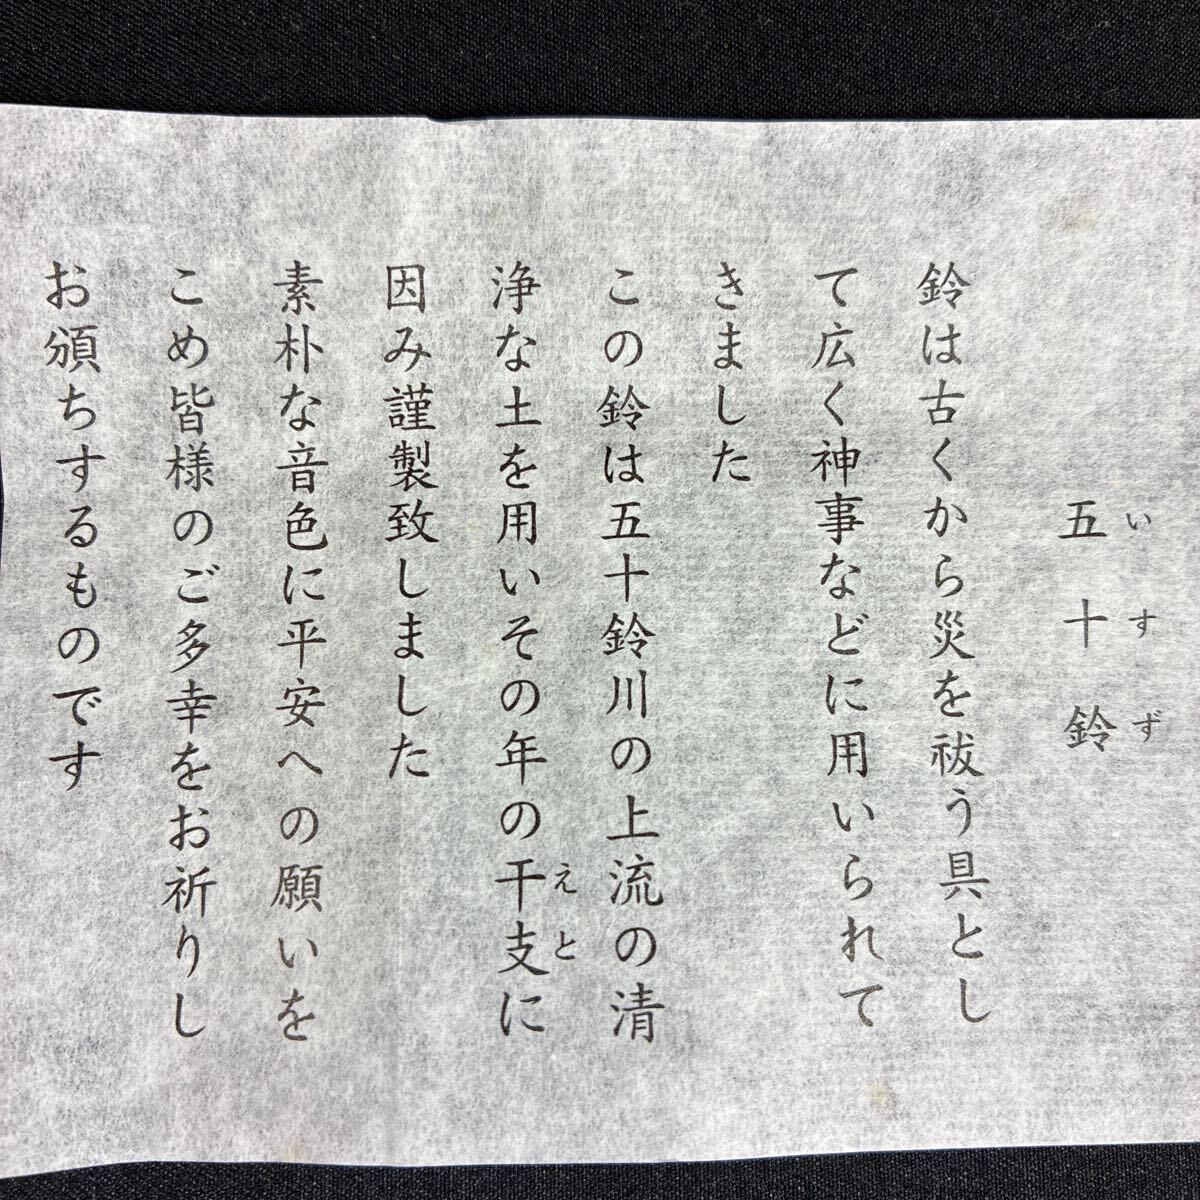 五十鈴
いすず
鈴は古くから災を祓う具とし
て広く神事などに用いられて
きました
この鈴は五十鈴川の上流の清
浄な土を用いその年の干支に
えと
因み謹製致しました
素朴な音色に平安への願いを
こめ皆様のご多幸をお祈りし
お頒ちするものです